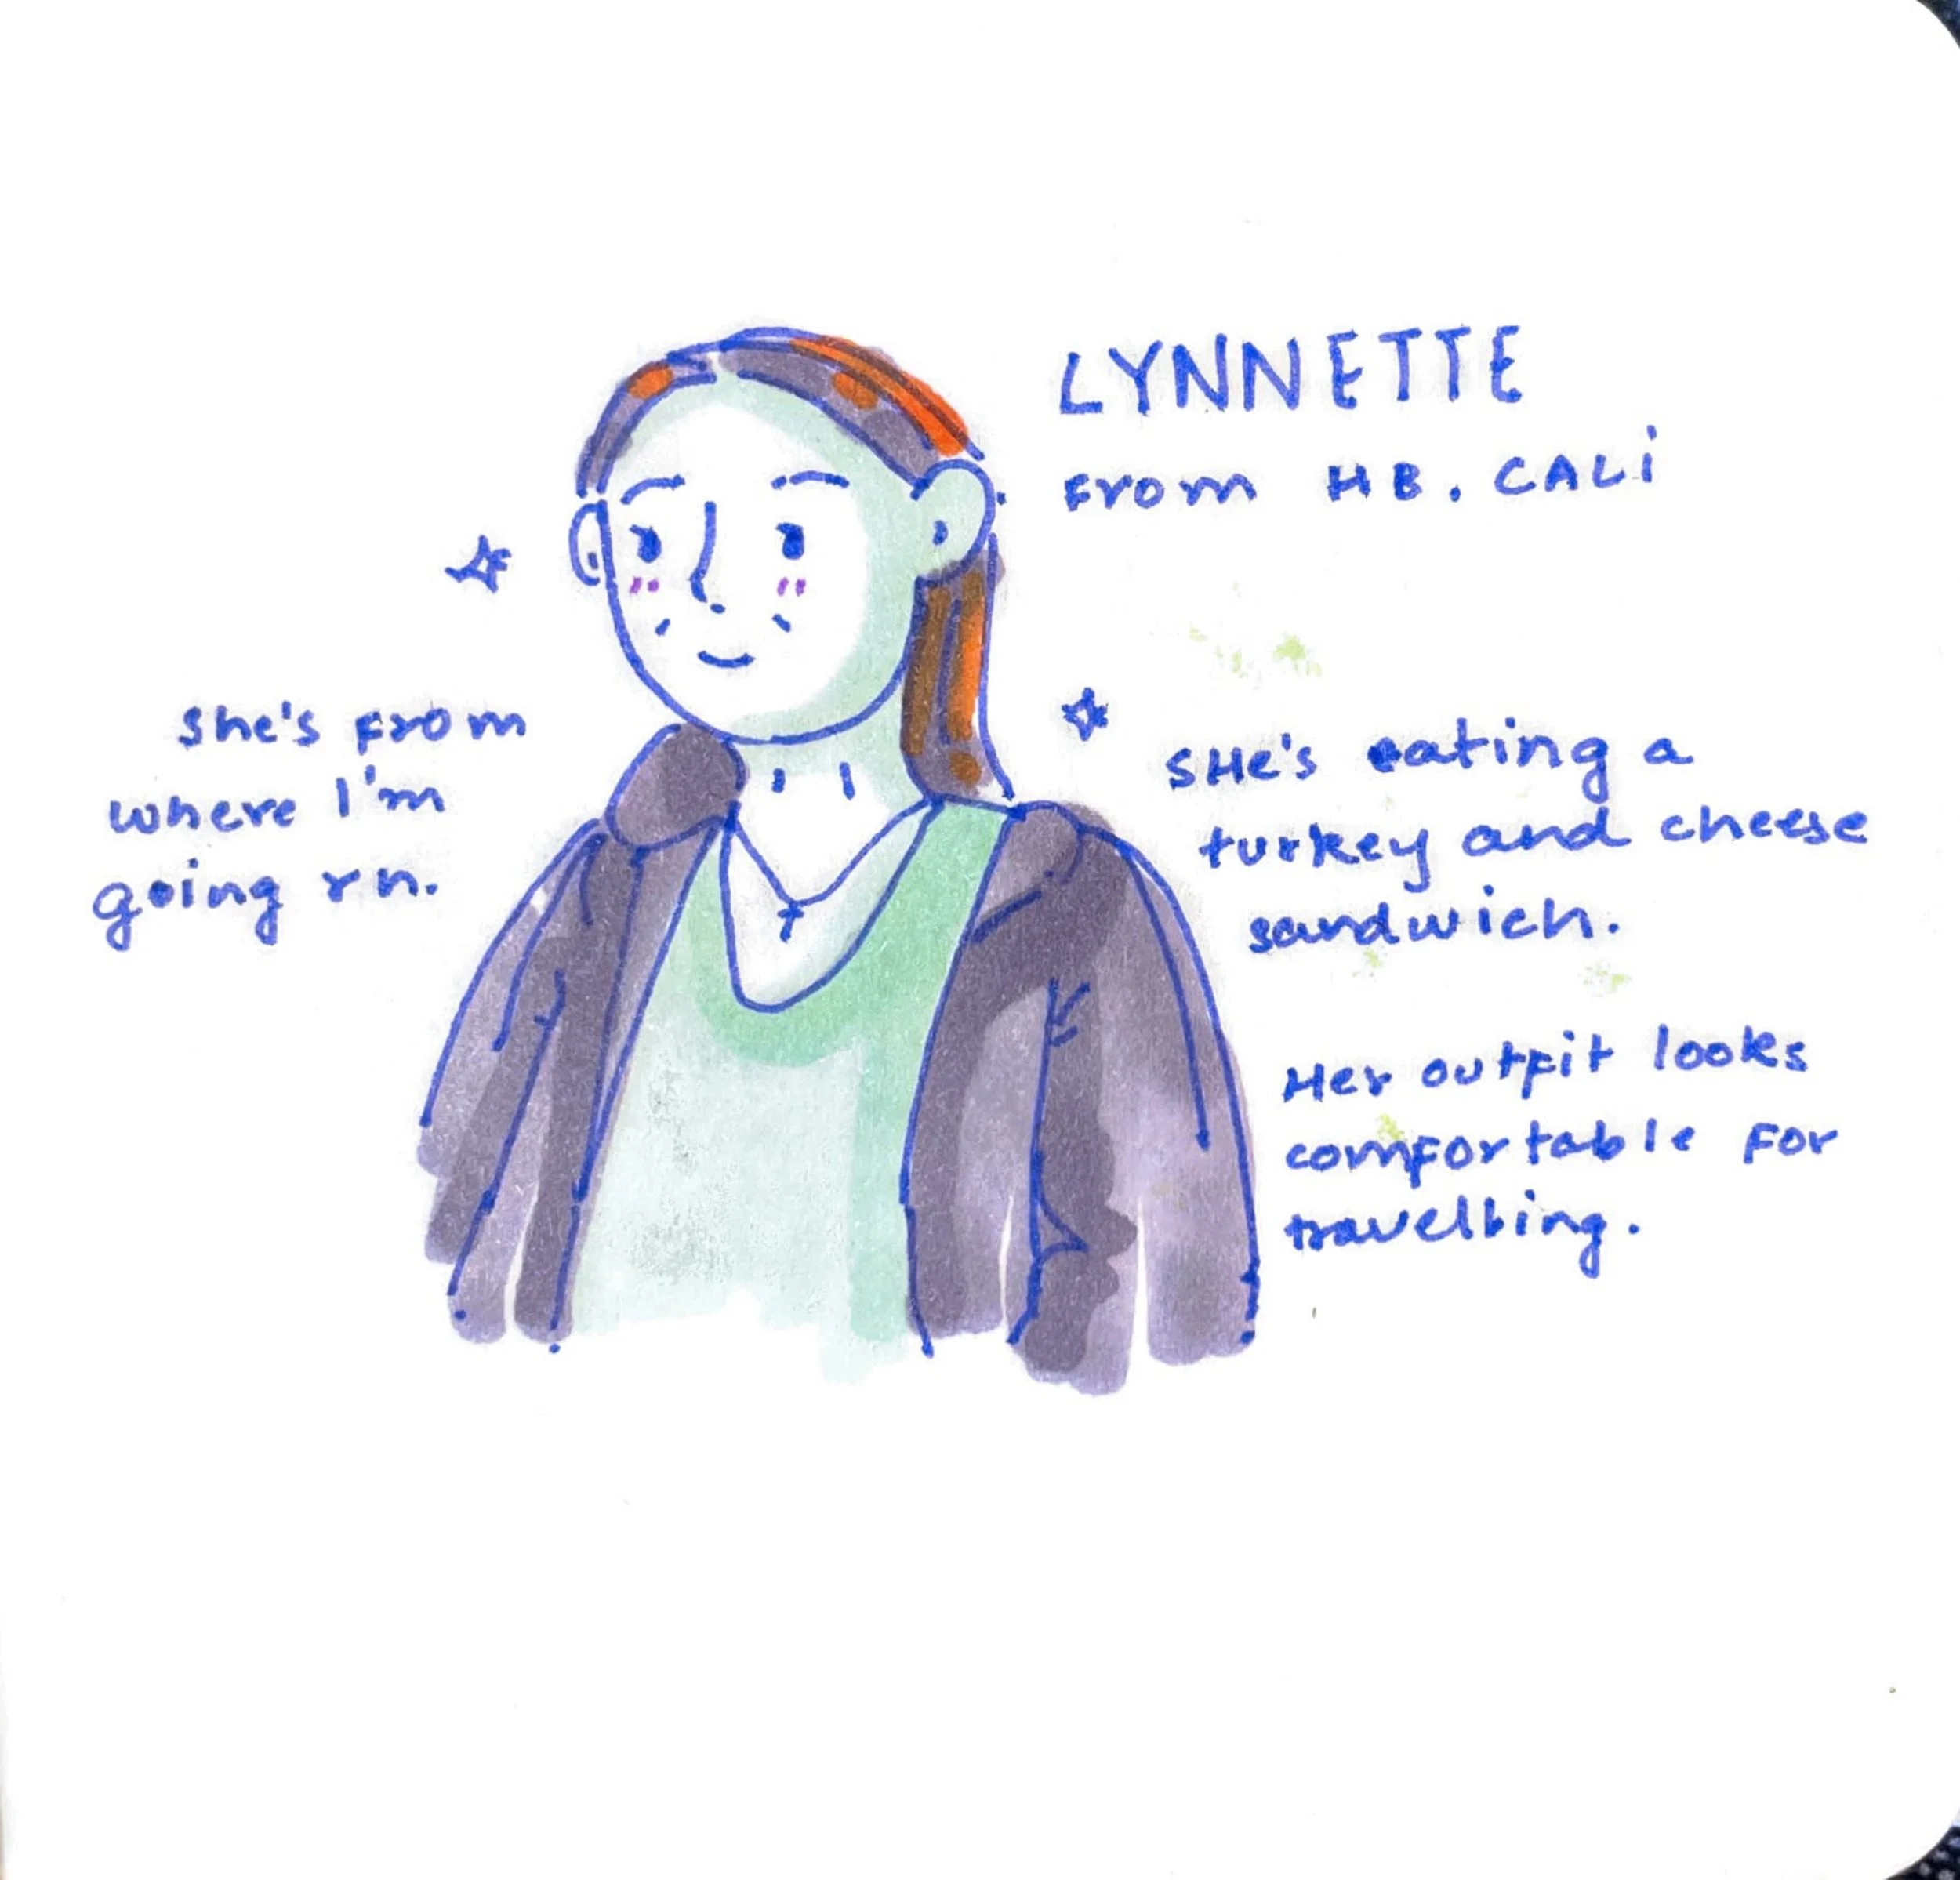 LYNNETTE
From HB. CALi
She's from
where I'm
going rn.
SHe's eating a
turkey and cheese
sandwich.
Her outfit looks
comfortable for
travelling.